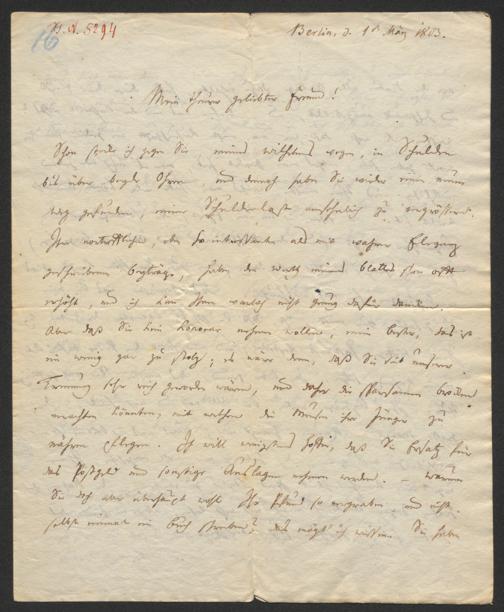 H. N. 5294
16
Berlin, d. 1t März 1803.
Mein theurer geliebter Freund!
Schon stecke ich gegen Sie meines Wilhelms wegen, in Schulden
bis über beyde Ohren, und danach haben Sie wieder einen neuen
Weg gefunden, meine Schuldenlast ansehnlich zu vergrössern.
Ihre vortrefflichen, eben so interessanten als mit wahrer Eleganz
geschriebenen Beyträge, haben den Werth meines Blattes schon oft
erhöht, und ich kann Ihnen warlich nicht genug dafür danken.
Aber daß Sie kein Honorar nehmen wollen, mein Bester, das ist
ein wenig gar zu stolz; es wäre denn, daß Sie seit unserer
Trennung sehr reich geworden wären, und daher die sparsamen
machten könnten, mit welchen die Musen ihre Jünger zu
nähren pflegen. Ich will wenigstens hoffen, daß Sie Ersatz für
das Postgeld und sonstige Auslagen nehmen werden. – Warum
Sie doch aber überhaupt wohl Ihr Pfund so vergraben, und nicht
selbst einmal ein Buch schreiben? das mögt' ich wissen. Sie haben